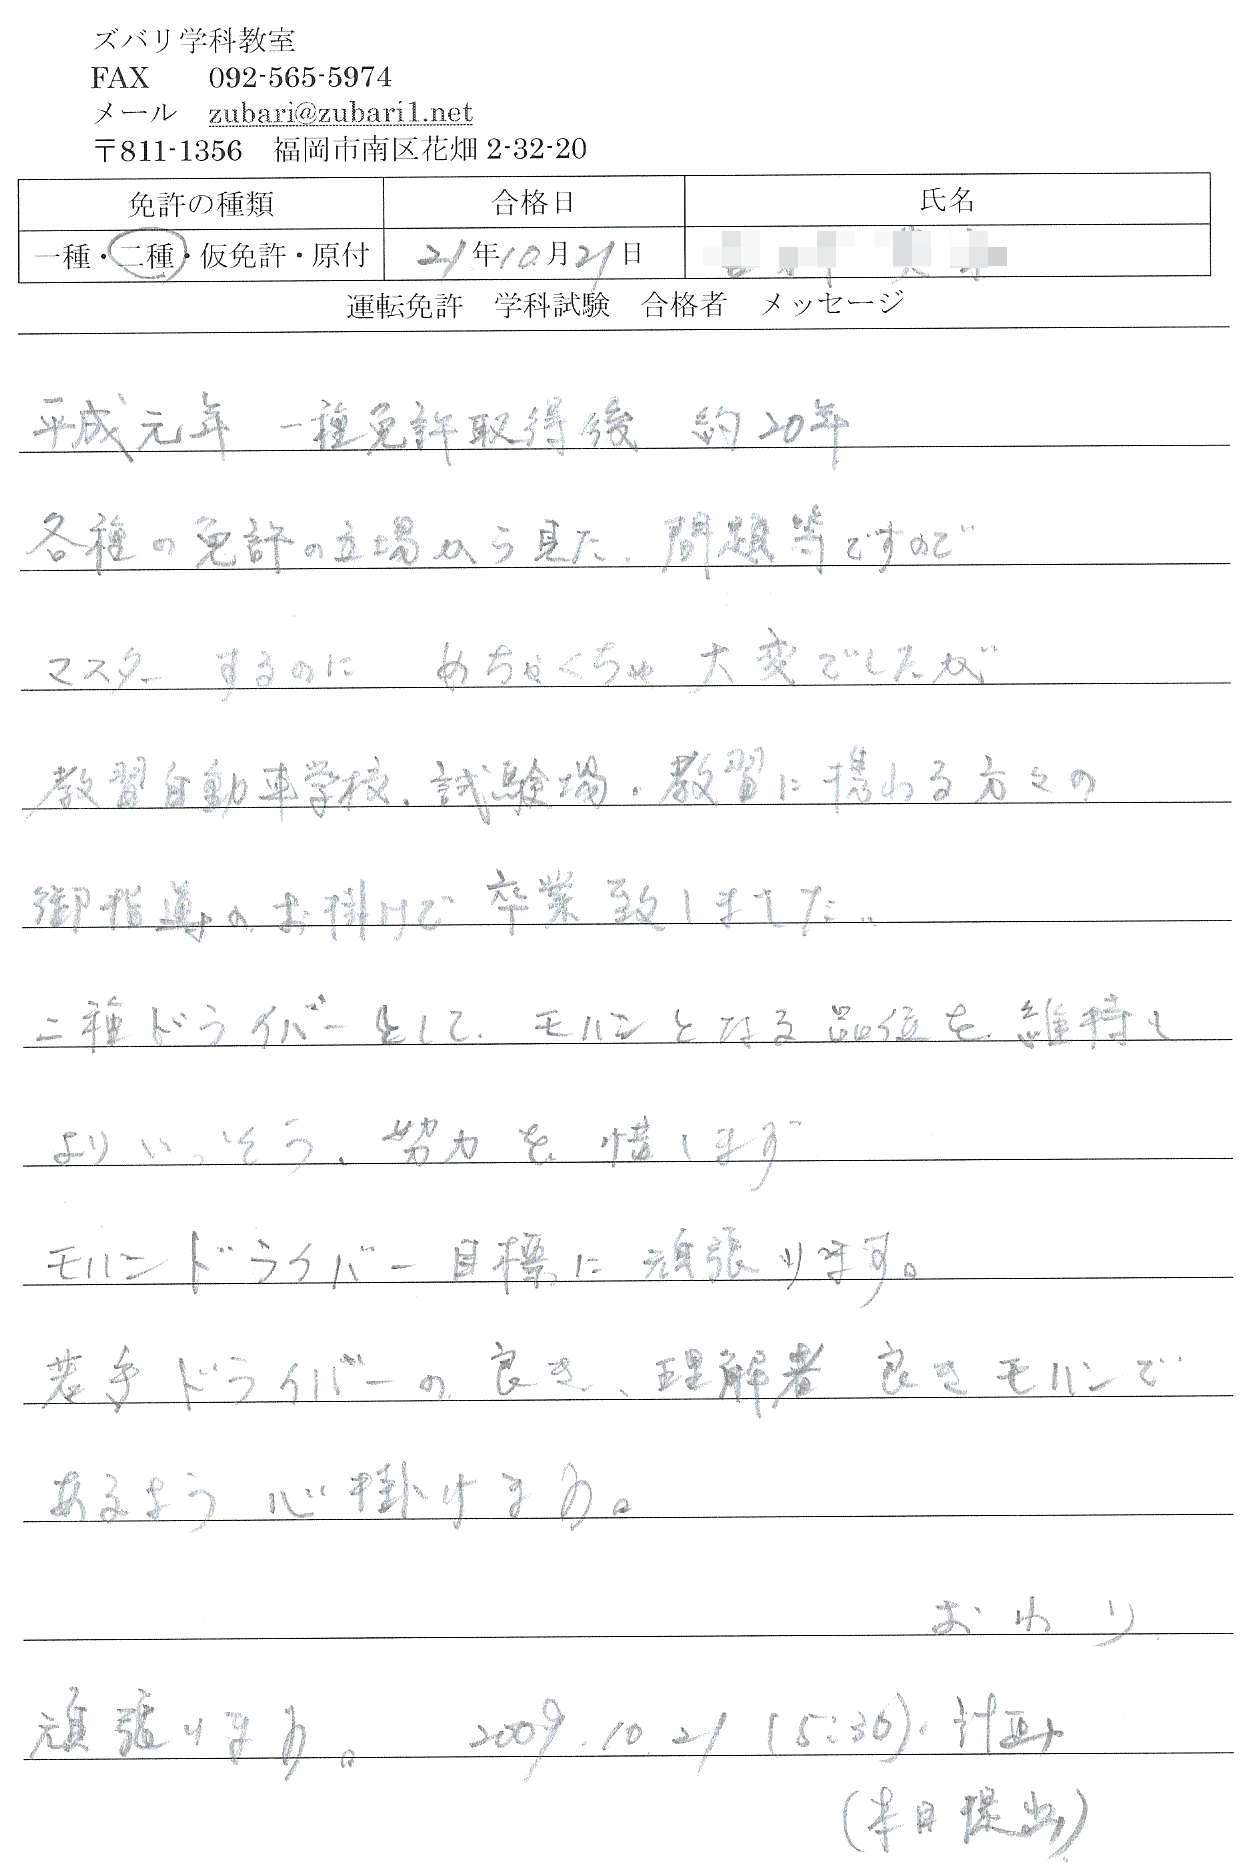 ズバリ学科教室
FAX　092-565-5974
メール　zubari@zubari1.net
〒811-1356　福岡市南区花畑 2-32-20
免許の種類　合格日　氏名
一種・二種・仮免許・原付　21年10月21日
運転免許　学科試験　合格者　メッセージ
平成元年　一種免許取得後　約20年
各種の免許の立場から見た、問題等ですので
マスターするのに　めちゃくちゃ大変でしたが
教習自動車学校、試験場、教習に携わる方々の
御指導のお掛けで　卒業致しました。
二種ドライバーとして、モハンとなる品位を維持し
よりいっそう、努力を惜しまず
モハンドライバー目標に頑張ります。
若手ドライバーの良き、理解者　良きモハンで
あるよう心掛けます。
おわり
頑張ります。　2009.10.21 (15:30)
(本日提出)